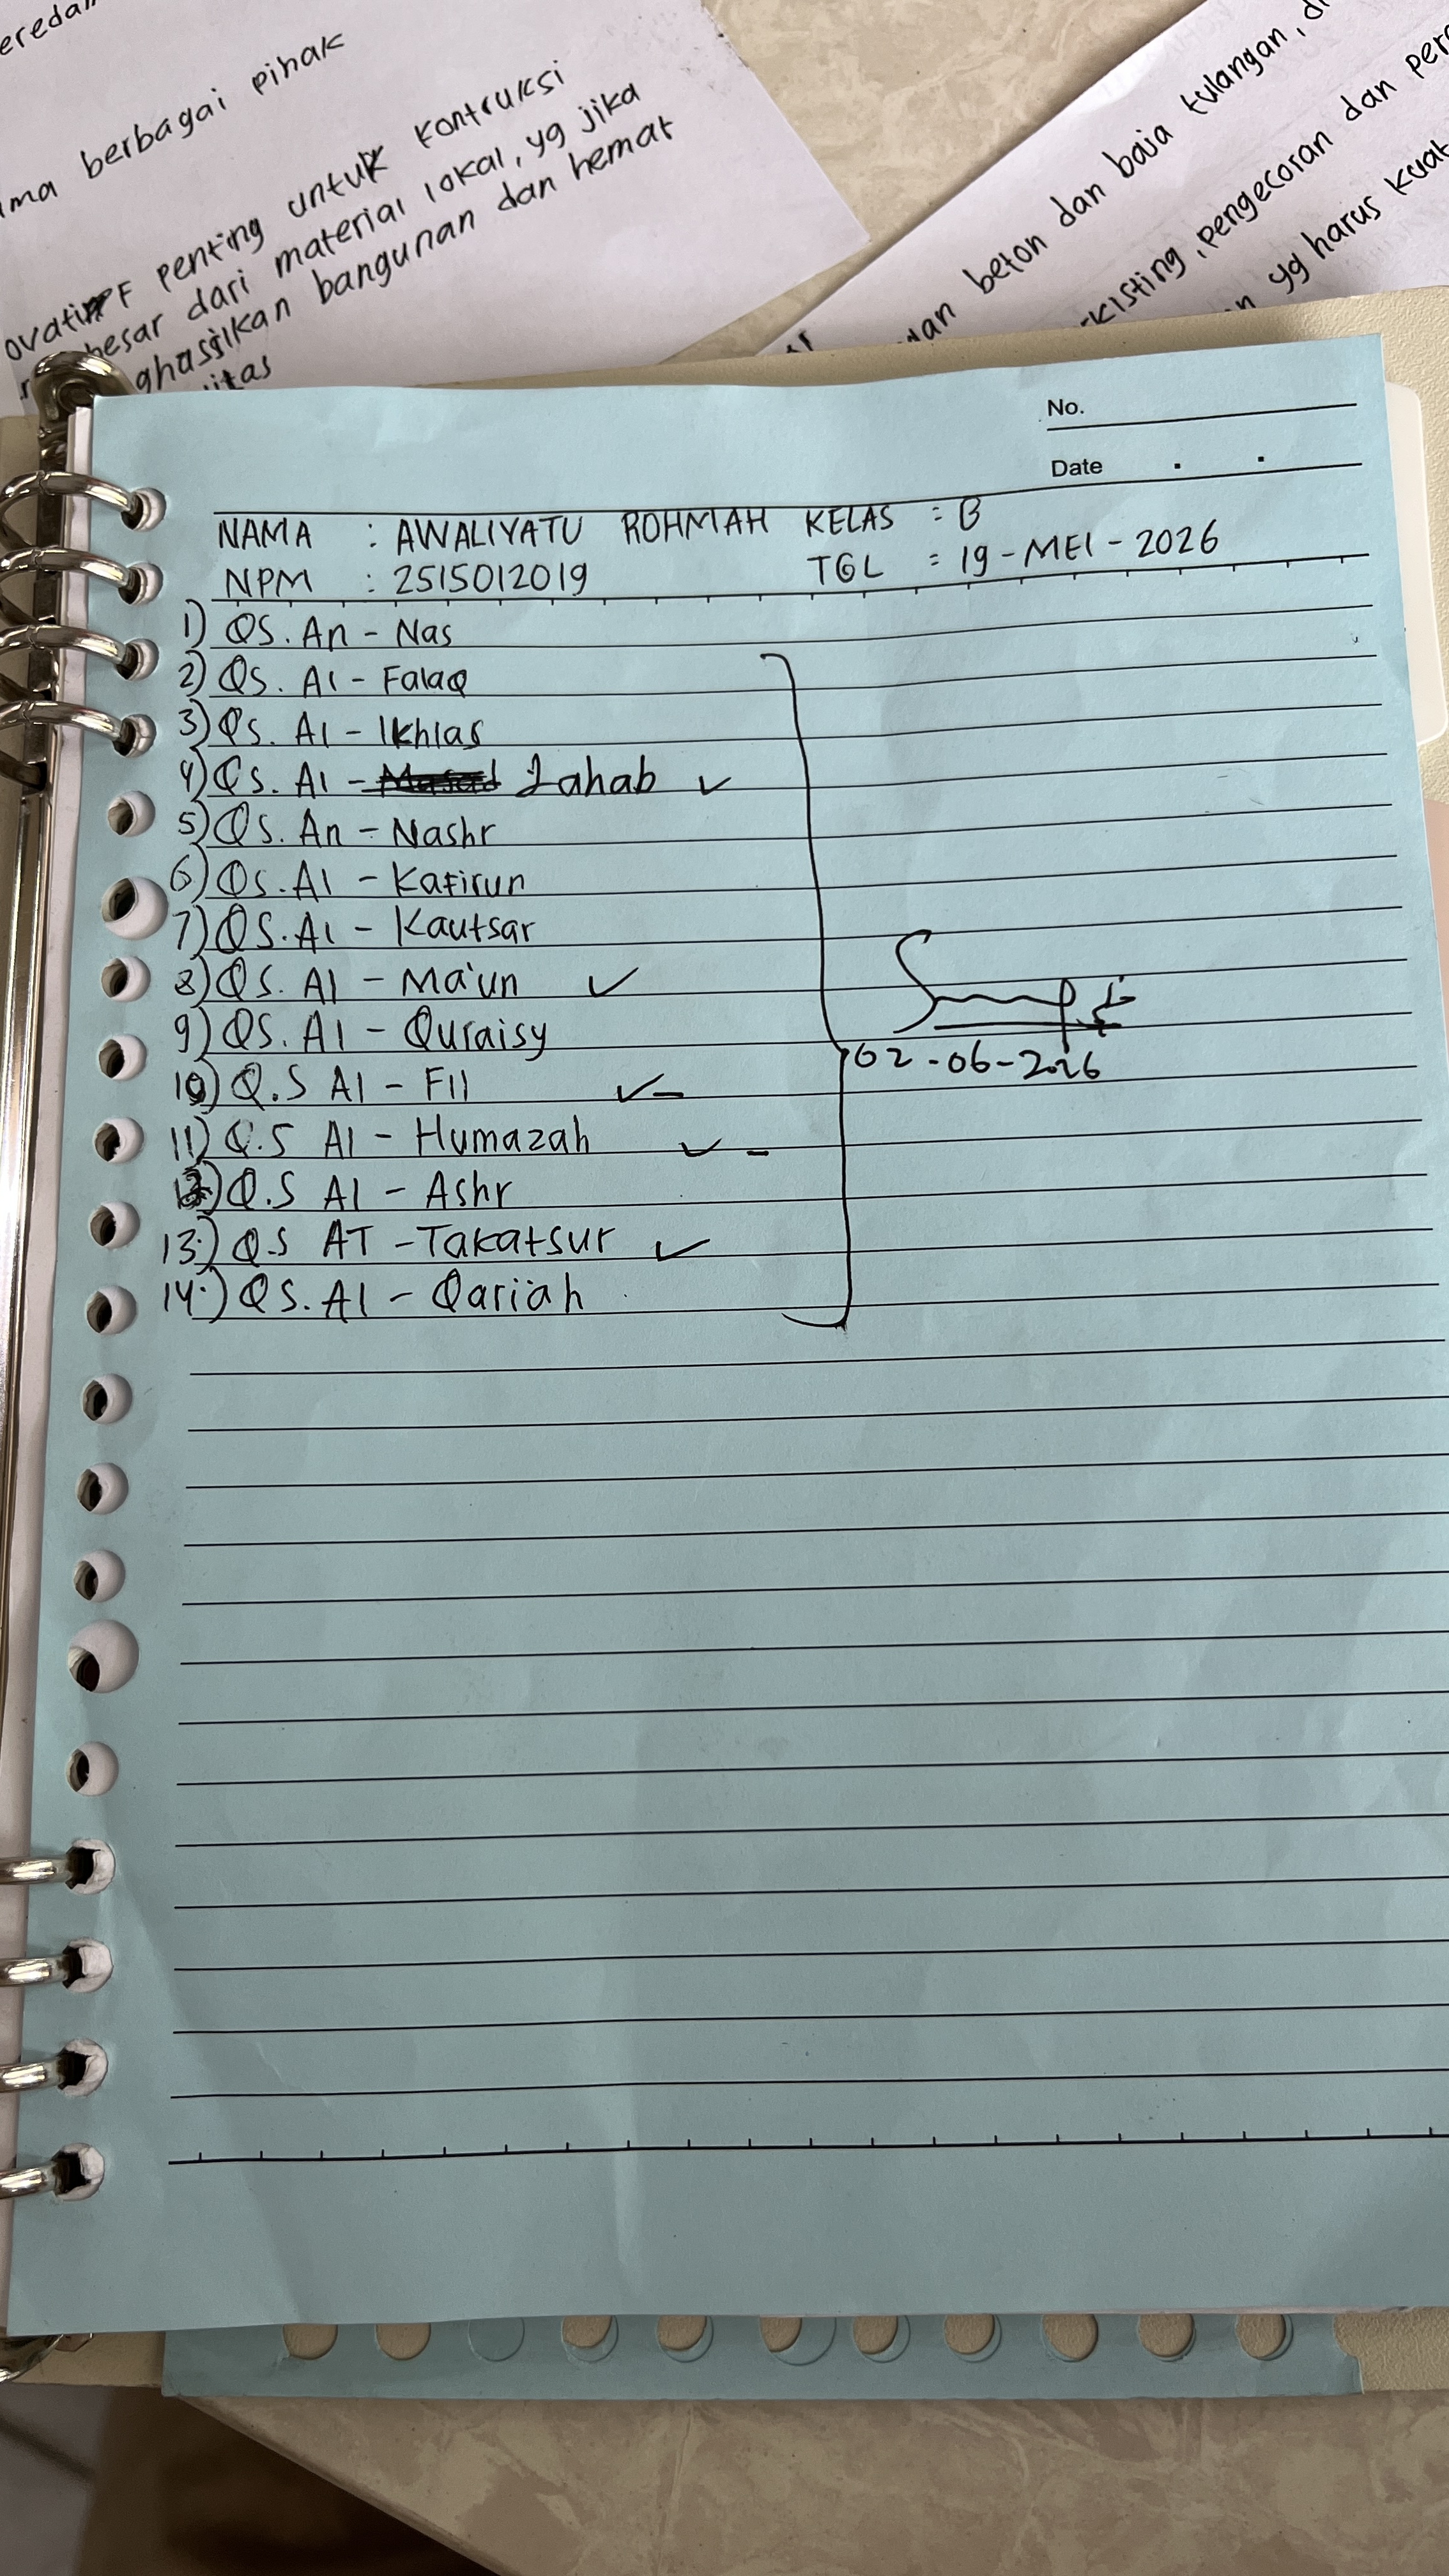 berbagai pihak
penting untuk kontruksi
besar dari material lokal, yg jika
bangunan dan hemat
beton dan baja tulangan,
pengecoran dan
yg harus kuat
No.
Date . .
NAMA : AWALIYATU ROHMAH KELAS : B
NPM : 2515012019 TGL : 19 - MEI - 2026
1) QS. An - Nas
2) QS. Al - Falaq
3) QS. Al - Ikhlas
4) QS. Al - Masad Lahab ✓
5) QS. An - Nashr
6) QS. Al - Kafirun
7) QS. Al - Kautsar
8) QS. Al - Ma'un ✓
9) QS. Al - Quraisy
10) Q.S Al - Fil ✓-
11) Q.S Al - Humazah ✓ -
12) Q.S Al - Ashr
13.) Q.S AT - Takatsur ✓
14.) QS. Al - Qariah
02 - 06 - 2026